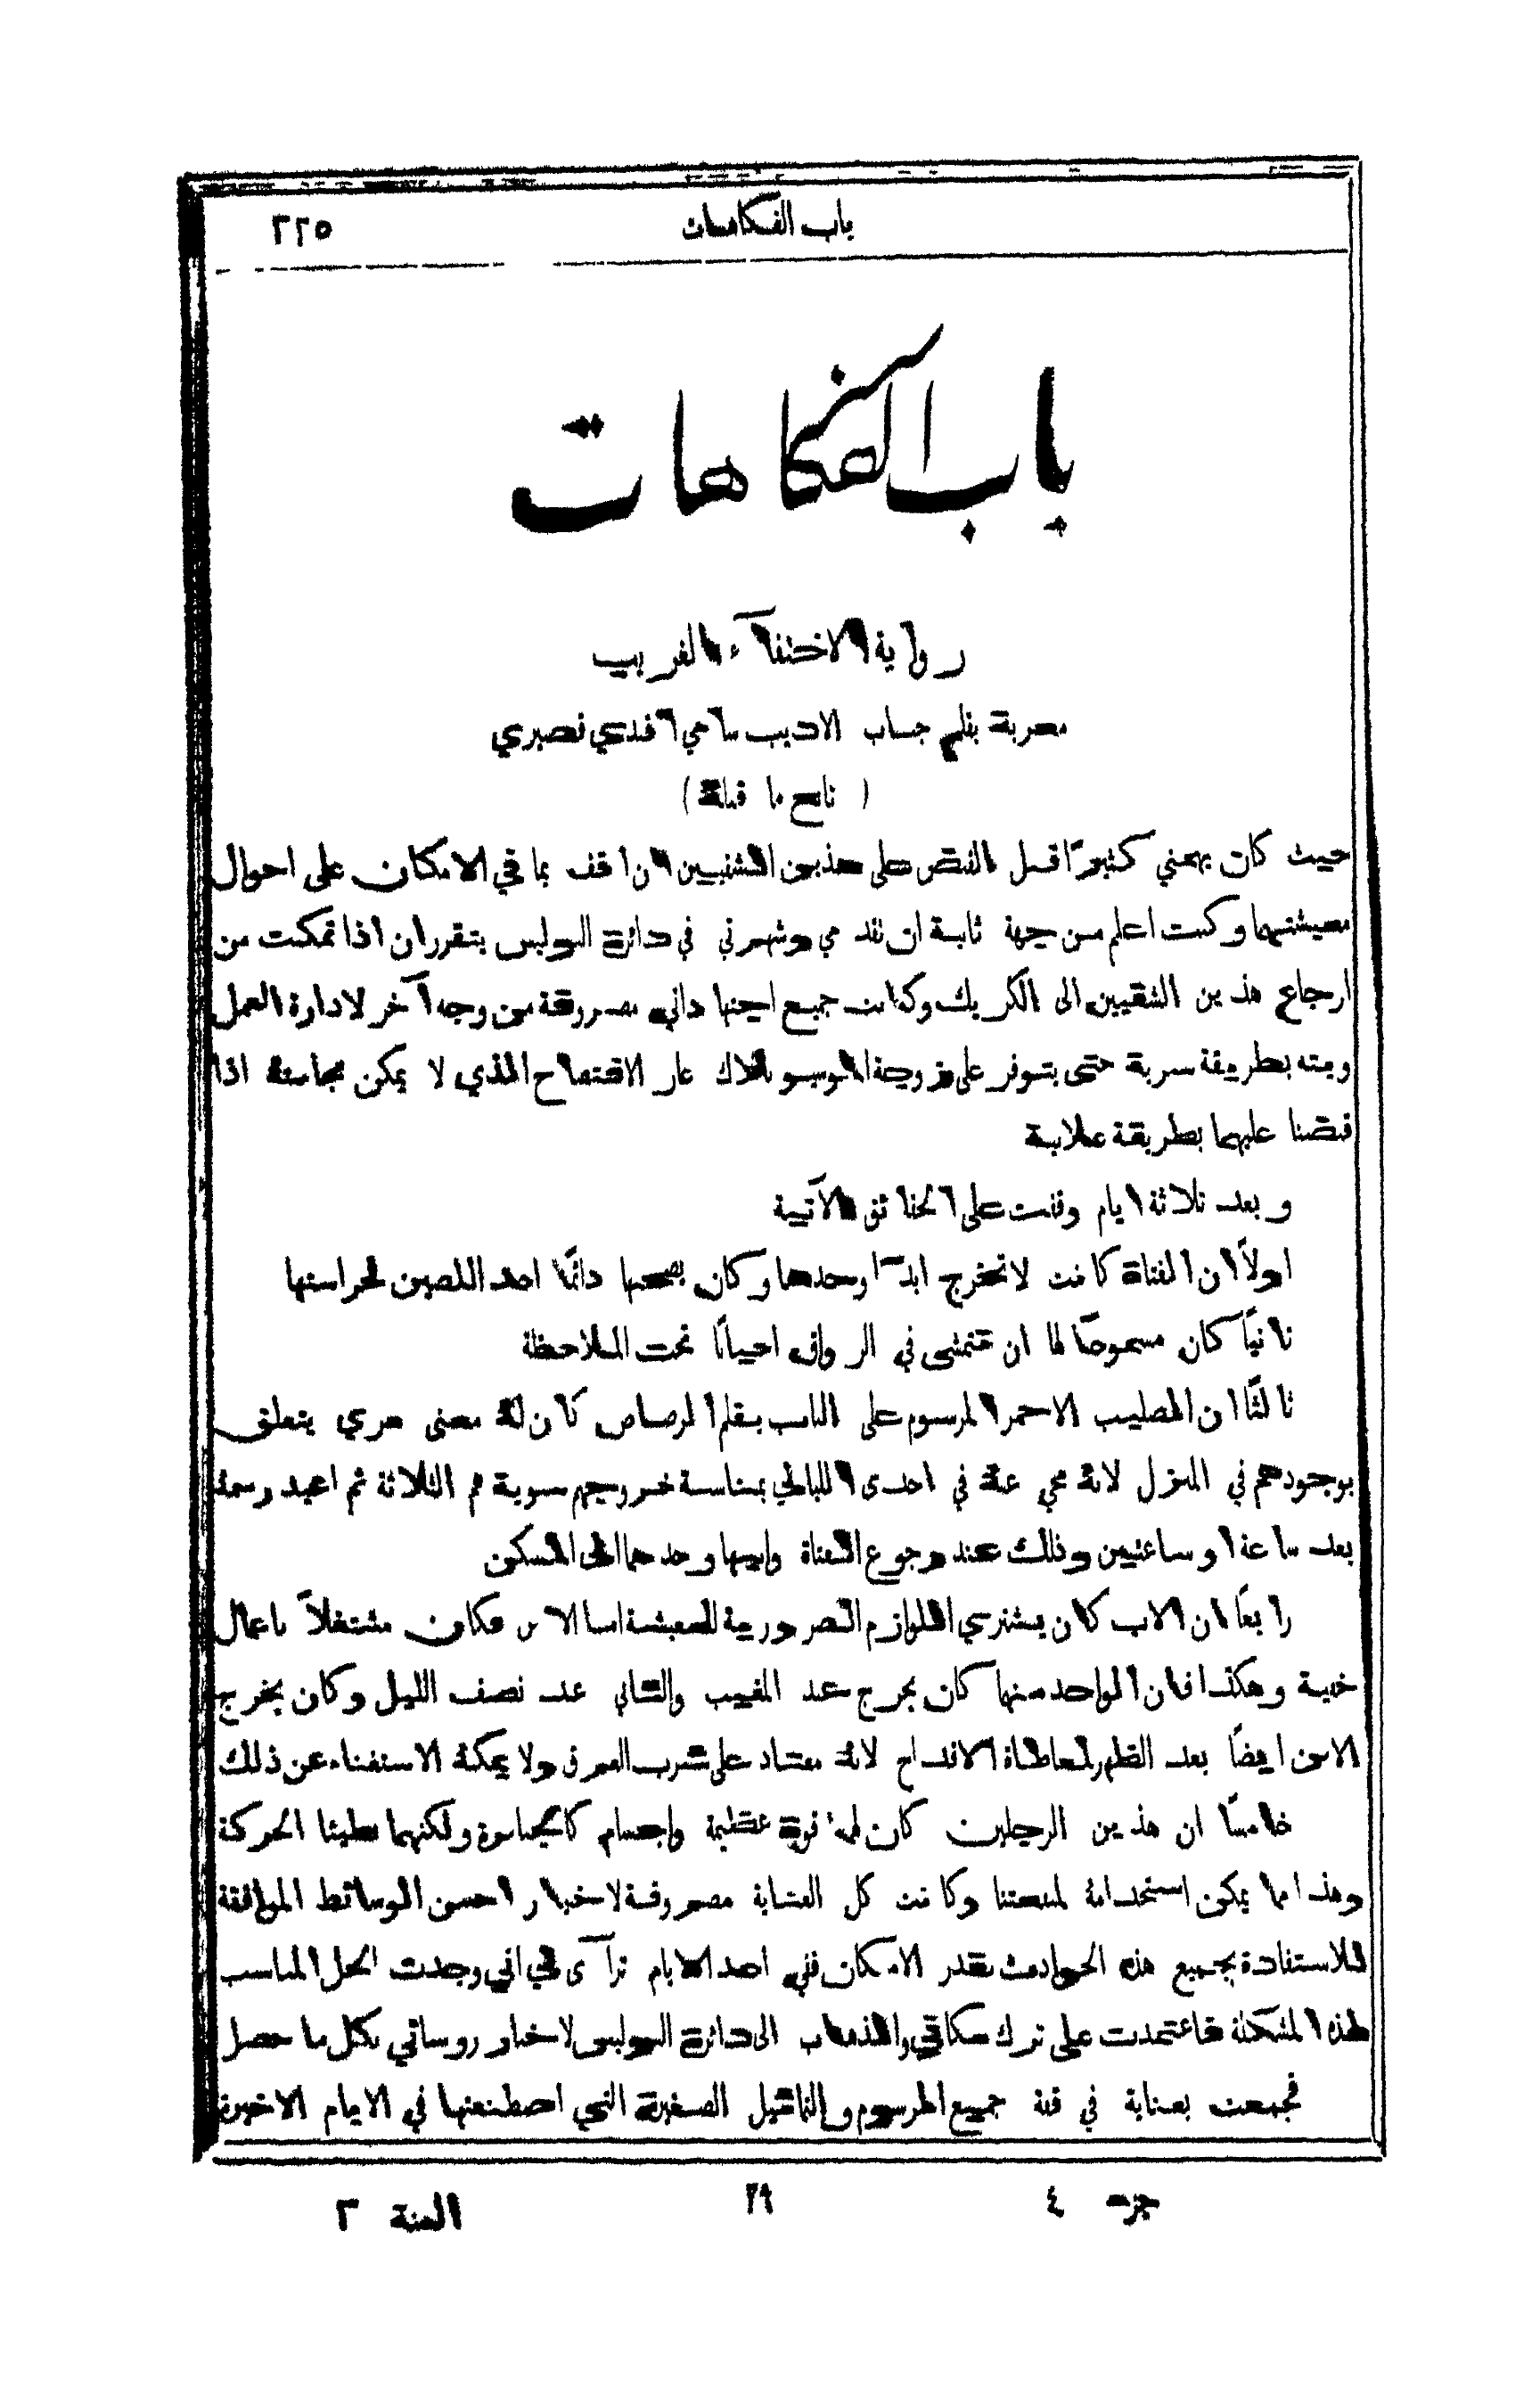 باب الفكاهات ٢٢٥
باب الفكاهات
رواية الاختفآء الغريب
معربة بقلم جناب الاديب سامي افندي قصيري
( تابع ما قبله )
حيث كان يهمني كثيرًا قبل القبض على هذين الشقيين ان اقف بما في الامكان على احوال
معيشتهما وكنت اعلم من جهة ثانية ان تقدمي وشهرتي في دائرة البوليس يتقرران اذا تمكنت من
ارجاع هذين الشقيين الى الكريك وكانت جميع اجتهاداتي مصروفة من وجه آخر لادارة العمل
وبته بطريقة سرية حتى يتوفر على زوجة الموسيو بلاك عار الافتضاح الذي لا يمكن مجانبته اذا
قبضنا عليهما بطريقة علانية
وبعد ثلاثة ايام وقفت على الحقائق الآتية
اولاً ان الفتاة كانت لا تخرج ابدًا وحدها وكان يصحبها دائمًا احد اللصين لحراستها
ثانيًا كان مسموحًا لها ان تتمشى في الرواق احيانًا تحت الملاحظة
ثالثًا ان الصليب الاحمر المرسوم على الباب بقلم الرصاص كان له معنى سري يتعلق
بوجودهم في المنزل لانه محي عنه في احدى الليالي بمناسبة خروجهم سوية هم الثلاثة ثم اعيد رسمه
بعد ساعة او ساعتين وذلك عند رجوع الفتاة وابيها وحدهما الى المسكن
رابعًا ان الاب كان يشتري اللوازم الضرورية للمعيشة اما الابن فكان مشتغلاً باعمال
خفية وهكذا فان الواحد منهما كان يخرج عند المغيب والثاني عند نصف الليل وكان يخرج
الابن ايضًا بعد الظهر لمعاطاة الاقداح لانه معتاد على شرب العرق ولا يمكنه الاستغناء عن ذلك
خامسًا ان هذين الرجلين كان لهما قوة عظيمة واجسام كالجبابرة ولكنهما بطيئا الحركة
وهذا مما يمكن استخدامه لمنفعتنا وكانت كل العناية مصروفة لاختيار احسن الوسائط الموافقة
للاستفادة بجميع هذه الحوادث بقدر الامكان ففي احد الايام ترآى لي اني وجدت الحل المناسب
لهذه المشكلة فاعتمدت على ترك مكاني والذهاب الى دائرة البوليس لاخبار روسائي بكل ما حصل
فجمعت بعناية في قنة جميع الرسوم والتماثيل الصغيرة التي اصطنعتها في الايام الاخيرة
جزء ٤ ٢٩ السنة ٢